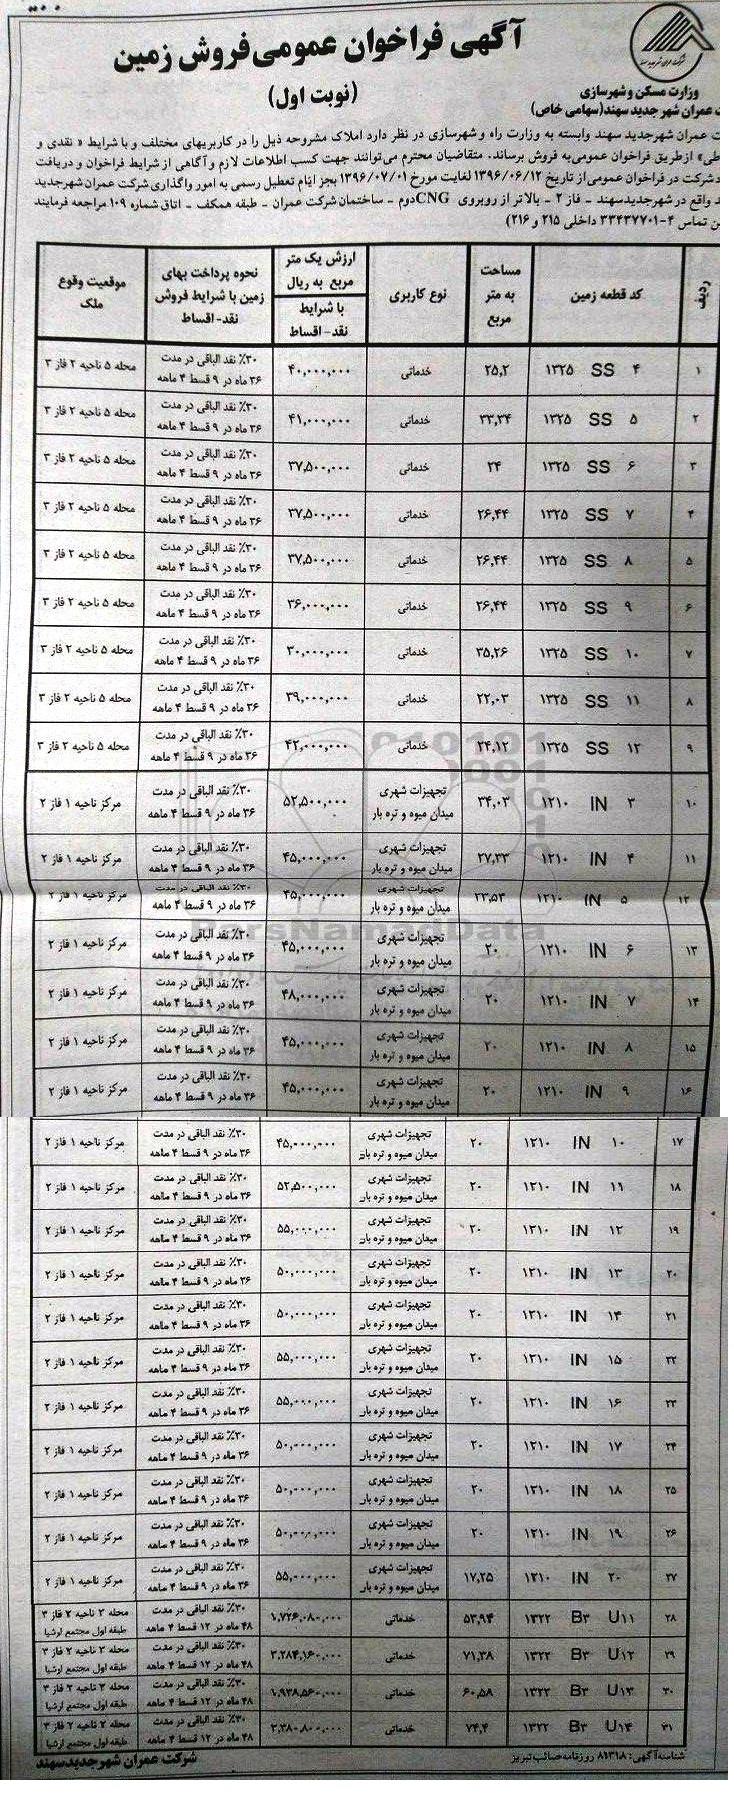 آگهی فراخوان عمومی فروش زمین
(نوبت اول)
شرکت عمران شهر جدید سهند
وزارت مسکن و شهرسازی
ت عمران شهر جدید سهند (سهامی خاص)
ت عمران شهرجدید سهند وابسته به وزارت راه و شهرسازی در نظر دارد املاک مشروحه ذیل را در کاربریهای مختلف و با شرایط « نقدی و
طی» از طریق فراخوان عمومی به فروش برساند. متقاضیان محترم می‌توانند جهت کسب اطلاعات لازم و آگاهی از شرایط فراخوان و دریافت
شرکت در فراخوان عمومی از تاریخ ۱۳۹۶/۰۶/۱۲ لغایت مورخ ۱۳۹۶/۰۷/۰۱ بجز ایام تعطیل رسمی به امور واگذاری شرکت عمران شهرجدید
واقع در شهرجدیدسهند - فاز ۲ - بالاتر از روبروی CNG دوم - ساختمان شرکت عمران - طبقه همکف - اتاق شماره ۱۰۹ مراجعه فرمایند
ن تماس ۴-۳۳۴۳۷۷۰۱ داخلی ۲۱۵ و ۲۱۶)
ردیف کد قطعه زمین مساحت به متر مربع نوع کاربری ارزش یک متر مربع به ریال با شرایط نقد-اقساط نحوه پرداخت بهای زمین با شرایط فروش نقد-اقساط موقعیت وقوع ملک
۱ ۱۳۲۵ SS ۴ ۲۵,۲ خدماتی ۴۰,۰۰۰,۰۰۰ ۳۰٪ نقد الباقی در مدت ۳۶ ماه در ۹ قسط ۴ ماهه محله ۵ ناحیه ۲ فاز ۳
۲ ۱۳۲۵ SS ۵ ۳۳,۳۴ خدماتی ۴۱,۰۰۰,۰۰۰ ۳۰٪ نقد الباقی در مدت ۳۶ ماه در ۹ قسط ۴ ماهه محله ۵ ناحیه ۲ فاز ۳
۳ ۱۳۲۵ SS ۶ ۲۴ خدماتی ۳۷,۵۰۰,۰۰۰ ۳۰٪ نقد الباقی در مدت ۳۶ ماه در ۹ قسط ۴ ماهه محله ۵ ناحیه ۲ فاز ۳
۴ ۱۳۲۵ SS ۷ ۲۶,۴۴ خدماتی ۳۷,۵۰۰,۰۰۰ ۳۰٪ نقد الباقی در مدت ۳۶ ماه در ۹ قسط ۴ ماهه محله ۵ ناحیه ۲ فاز ۳
۵ ۱۳۲۵ SS ۸ ۲۶,۴۴ خدماتی ۳۷,۵۰۰,۰۰۰ ۳۰٪ نقد الباقی در مدت ۳۶ ماه در ۹ قسط ۴ ماهه محله ۵ ناحیه ۲ فاز ۳
۶ ۱۳۲۵ SS ۹ ۲۶,۴۴ خدماتی ۳۶,۰۰۰,۰۰۰ ۳۰٪ نقد الباقی در مدت ۳۶ ماه در ۹ قسط ۴ ماهه محله ۵ ناحیه ۲ فاز ۳
۷ ۱۳۲۵ SS ۱۰ ۳۵,۲۶ خدماتی ۳۰,۰۰۰,۰۰۰ ۳۰٪ نقد الباقی در مدت ۳۶ ماه در ۹ قسط ۴ ماهه محله ۵ ناحیه ۲ فاز ۳
۸ ۱۳۲۵ SS ۱۱ ۲۲,۰۳ خدماتی ۳۹,۰۰۰,۰۰۰ ۳۰٪ نقد الباقی در مدت ۳۶ ماه در ۹ قسط ۴ ماهه محله ۵ ناحیه ۲ فاز ۳
۹ ۱۳۲۵ SS ۱۲ ۲۴,۱۲ خدماتی ۴۲,۰۰۰,۰۰۰ ۳۰٪ نقد الباقی در مدت ۳۶ ماه در ۹ قسط ۴ ماهه محله ۵ ناحیه ۲ فاز ۳
۱۰ ۱۲۱۰ IN ۳ ۳۴,۰۲ تجهیزات شهری میدان میوه و تره بار ۵۲,۵۰۰,۰۰۰ ۳۰٪ نقد الباقی در مدت ۳۶ ماه در ۹ قسط ۴ ماهه مرکز ناحیه ۱ فاز ۲
۱۱ ۱۲۱۰ IN ۴ ۲۷,۳۳ تجهیزات شهری میدان میوه و تره بار ۴۵,۰۰۰,۰۰۰ ۳۰٪ نقد الباقی در مدت ۳۶ ماه در ۹ قسط ۴ ماهه مرکز ناحیه ۱ فاز ۲
۱۲ ۱۲۱۰ IN ۵ ۲۳,۵۳ تجهیزات شهری میدان میوه و تره بار ۴۵,۰۰۰,۰۰۰ ۳۰٪ نقد الباقی در مدت ۳۶ ماه در ۹ قسط ۴ ماهه مرکز ناحیه ۱ فاز ۲
۱۳ ۱۲۱۰ IN ۶ ۲۰ تجهیزات شهری میدان میوه و تره بار ۴۵,۰۰۰,۰۰۰ ۳۰٪ نقد الباقی در مدت ۳۶ ماه در ۹ قسط ۴ ماهه مرکز ناحیه ۱ فاز ۲
۱۴ ۱۲۱۰ IN ۷ ۲۰ تجهیزات شهری میدان میوه و تره بار ۴۸,۰۰۰,۰۰۰ ۳۰٪ نقد الباقی در مدت ۳۶ ماه در ۹ قسط ۴ ماهه مرکز ناحیه ۱ فاز ۲
۱۵ ۱۲۱۰ IN ۸ ۲۰ تجهیزات شهری میدان میوه و تره بار ۴۵,۰۰۰,۰۰۰ ۳۰٪ نقد الباقی در مدت ۳۶ ماه در ۹ قسط ۴ ماهه مرکز ناحیه ۱ فاز ۲
۱۶ ۱۲۱۰ IN ۹ ۲۰ تجهیزات شهری میدان میوه و تره بار ۴۵,۰۰۰,۰۰۰ ۳۰٪ نقد الباقی در مدت ۳۶ ماه در ۹ قسط ۴ ماهه مرکز ناحیه ۱ فاز ۲
۱۷ ۱۲۱۰ IN ۱۰ ۲۰ تجهیزات شهری میدان میوه و تره بار ۴۵,۰۰۰,۰۰۰ ۳۰٪ نقد الباقی در مدت ۳۶ ماه در ۹ قسط ۴ ماهه مرکز ناحیه ۱ فاز ۲
۱۸ ۱۲۱۰ IN ۱۱ ۲۰ تجهیزات شهری میدان میوه و تره بار ۵۲,۵۰۰,۰۰۰ ۳۰٪ نقد الباقی در مدت ۳۶ ماه در ۹ قسط ۴ ماهه مرکز ناحیه ۱ فاز ۲
۱۹ ۱۲۱۰ IN ۱۲ ۲۰ تجهیزات شهری میدان میوه و تره بار ۵۵,۰۰۰,۰۰۰ ۳۰٪ نقد الباقی در مدت ۳۶ ماه در ۹ قسط ۴ ماهه مرکز ناحیه ۱ فاز ۲
۲۰ ۱۲۱۰ IN ۱۳ ۲۰ تجهیزات شهری میدان میوه و تره بار ۵۰,۰۰۰,۰۰۰ ۳۰٪ نقد الباقی در مدت ۳۶ ماه در ۹ قسط ۴ ماهه مرکز ناحیه ۱ فاز ۲
۲۱ ۱۲۱۰ IN ۱۴ ۲۰ تجهیزات شهری میدان میوه و تره بار ۵۰,۰۰۰,۰۰۰ ۳۰٪ نقد الباقی در مدت ۳۶ ماه در ۹ قسط ۴ ماهه مرکز ناحیه ۱ فاز ۲
۲۲ ۱۲۱۰ IN ۱۵ ۲۰ تجهیزات شهری میدان میوه و تره بار ۵۵,۰۰۰,۰۰۰ ۳۰٪ نقد الباقی در مدت ۳۶ ماه در ۹ قسط ۴ ماهه مرکز ناحیه ۱ فاز ۲
۲۳ ۱۲۱۰ IN ۱۶ ۲۰ تجهیزات شهری میدان میوه و تره بار ۵۵,۰۰۰,۰۰۰ ۳۰٪ نقد الباقی در مدت ۳۶ ماه در ۹ قسط ۴ ماهه مرکز ناحیه ۱ فاز ۲
۲۴ ۱۲۱۰ IN ۱۷ ۲۰ تجهیزات شهری میدان میوه و تره بار ۵۰,۰۰۰,۰۰۰ ۳۰٪ نقد الباقی در مدت ۳۶ ماه در ۹ قسط ۴ ماهه مرکز ناحیه ۱ فاز ۲
۲۵ ۱۲۱۰ IN ۱۸ ۲۰ تجهیزات شهری میدان میوه و تره بار ۵۰,۰۰۰,۰۰۰ ۳۰٪ نقد الباقی در مدت ۳۶ ماه در ۹ قسط ۴ ماهه مرکز ناحیه ۱ فاز ۲
۲۶ ۱۲۱۰ IN ۱۹ ۲۰ تجهیزات شهری میدان میوه و تره بار ۵۰,۰۰۰,۰۰۰ ۳۰٪ نقد الباقی در مدت ۳۶ ماه در ۹ قسط ۴ ماهه مرکز ناحیه ۱ فاز ۲
۲۷ ۱۲۱۰ IN ۲۰ ۱۷,۲۵ تجهیزات شهری میدان میوه و تره بار ۵۵,۰۰۰,۰۰۰ ۳۰٪ نقد الباقی در مدت ۳۶ ماه در ۹ قسط ۴ ماهه مرکز ناحیه ۱ فاز ۲
۲۸ ۱۳۲۲ B۳ U۱۱ ۵۳,۹۴ خدماتی ۱,۷۲۶,۰۸۰,۰۰۰ ۳۰٪ نقد الباقی در مدت ۴۸ ماه در ۱۲ قسط ۴ ماهه محله ۲ ناحیه ۲ فاز ۳ طبقه اول مجتمع ارشیا
۲۹ ۱۳۲۲ B۳ U۱۲ ۷۱,۳۸ خدماتی ۲,۲۸۴,۱۶۰,۰۰۰ ۳۰٪ نقد الباقی در مدت ۴۸ ماه در ۱۲ قسط ۴ ماهه محله ۲ ناحیه ۲ فاز ۳ طبقه اول مجتمع ارشیا
۳۰ ۱۳۲۲ B۳ U۱۳ ۶۰,۵۸ خدماتی ۱,۹۳۸,۵۶۰,۰۰۰ ۳۰٪ نقد الباقی در مدت ۴۸ ماه در ۱۲ قسط ۴ ماهه محله ۲ ناحیه ۲ فاز ۳ طبقه اول مجتمع ارشیا
۳۱ ۱۳۲۲ B۳ U۱۴ ۷۴,۴ خدماتی ۲,۳۸۰,۸۰۰,۰۰۰ ۳۰٪ نقد الباقی در مدت ۴۸ ماه در ۱۲ قسط ۴ ماهه محله ۲ ناحیه ۲ فاز ۳ طبقه اول مجتمع ارشیا
شناسه آگهی: ۸۱۳۱۸ روزنامه صائب تبریز
شرکت عمران شهر جدید سهند